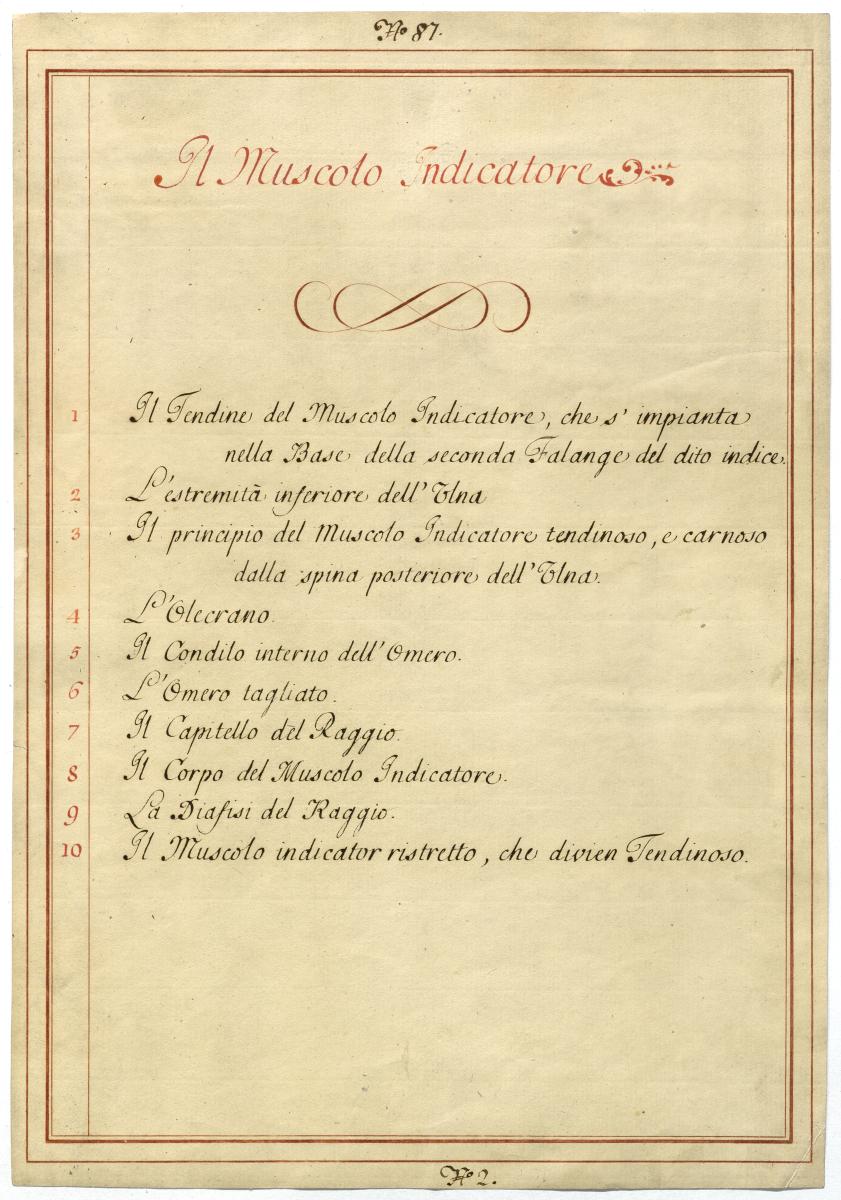 No 87.
Il Muscolo Indicatore
1 Il Tendine del Muscolo Indicatore, che s' impianta
nella Base della seconda Falange del dito indice.
2 L'estremità inferiore dell' Ulna
3 Il principio del Muscolo Indicatore tendinoso, e carnoso
dalla spina posteriore dell' Ulna.
4 L'Olecrano.
5 Il Condilo interno dell' Omero.
6 L'Omero tagliato.
7 Il Capitello del Raggio.
8 Il Corpo del Muscolo Indicatore.
9 La Diafisi del Raggio.
10 Il Muscolo indicator ristretto, che divien Tendinoso.
No 2.